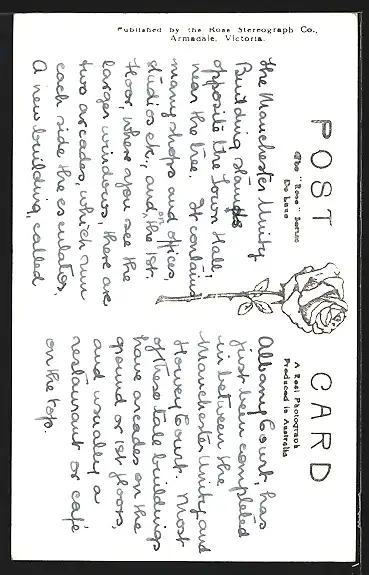 Published by the Rose Stereograph Co.,
Armadale, Victoria.
POST CARD
The "Rose" Series
De Luxe
A Real Photograph
Produced in Australia
The Manchester Unity
Building stands
opposite the Town Hall
near the tree. It contains
many shops and offices,
studios etc., and, on the 1st
floor, where you see the
larger windows, there are
two arcades, which run
each side the esculator.
A new building, called
Albany Court, has
just been completed
in between the
Manchester Unity and
Howey Court. Most
of these tall buildings
have arcades on the
ground or 1st floors,
and usually a
restaurant or café
on the top.